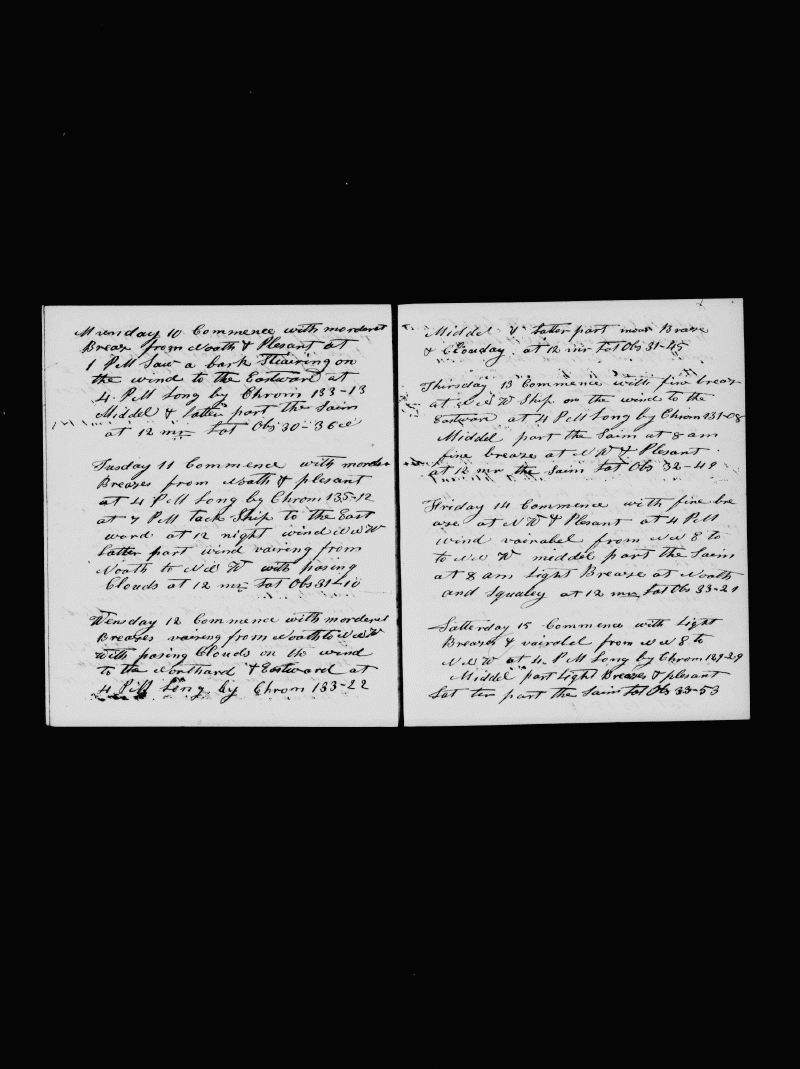 Munday 10 Commence with morderet
Breaze from Noath & Plesant at
1 PM Saw a bark Stearing on
the wind to the Eastward at
4 PM Long by Chrom 133-13
Middel & latter part the Saim
at 12 mr Lat Obs 30-36
Tusday 11 Commence with morder
Breazes from Noath & plesant
at 4 PM Long by Chrom 135-12
at 7 PM tack Ship to the East
ward at 12 night wind NNW
Latter part wind vairing from
Noath to NNW with pasing
Clouds at 12 mr Lat Obs 31-10
Wensday 12 Commence with morderet
Breazes vairing from Noath to NNW
with pasing Clouds on the wind
to the Northard & Eastward at
4 PM Long by Chrom 133-22
Middel & Latter part moar Breaze
& Clouday at 12 mr Lat Obs 31-45
Thirsday 13 Commence with fine breaz
at NNW Ship on the wind to the
Eastward at 4 PM Long by Chrom 131-08
Middel part the Saim at 8 am
fine breaze at NW & Plesant
at 12 mr the Saim Lat Obs 32-49
Friday 14 Commence with fine bre
aze at NW & Plesant at 4 PM
wind vairabel from NNE to
to NNW middel part the Saim
at 8 am Light Breaze at Noath
and Squaley at 12 mr Lat Obs 33-21
Satterday 15 Commence with Light
Breazes & vairabel from NNE to
NNW at 4 PM Long by Chrom 129-29
Middel part Light Breazes & plesant
Lat ter part the Saim Lat Obs 33-53